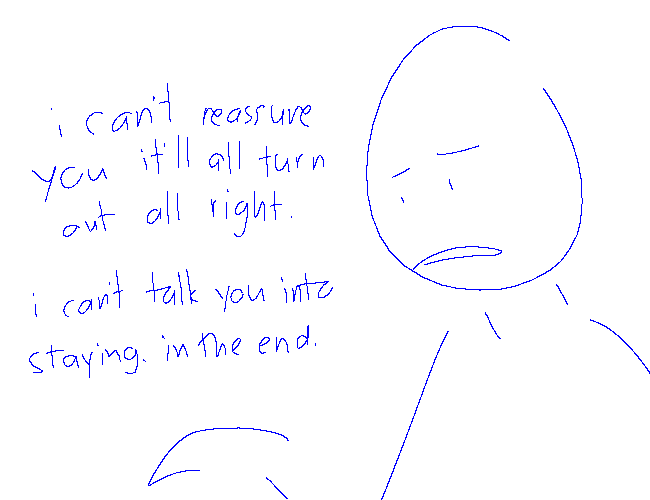 i can't reassure
you it'll all turn
out all right.
i can't talk you into
staying. in the end.